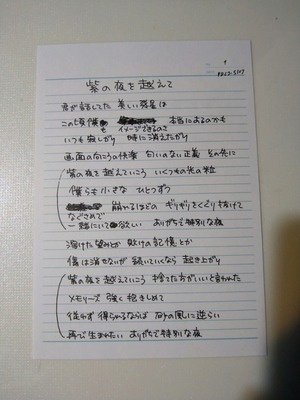 紫の夜を越えて
君が話してた 美しい惑星は
この頃僕も イメージできるのさ 本当にあるのかも
いつも寂しがり 時に消えたがり
画面の向こうの快楽 匂いのない正義 その先に
紫の夜を越えていこう いくつもの光の粒
僕らも小さな ひとつずつ
崩れるほどの ギリギリをくぐり抜けて
なぐさめで
一緒にいて欲しい ありがちで特別な夜
溶けた望みとか 敗けの記憶とか
傷は消せないが 続いていくなら 起き上がり
紫の夜を越えていこう 捨てた方がいいと言われた
メモリーズ 強く抱きしめて
従わず 得られるならば 砂の風に逆らい
再び生まれたい ありがちで特別な夜